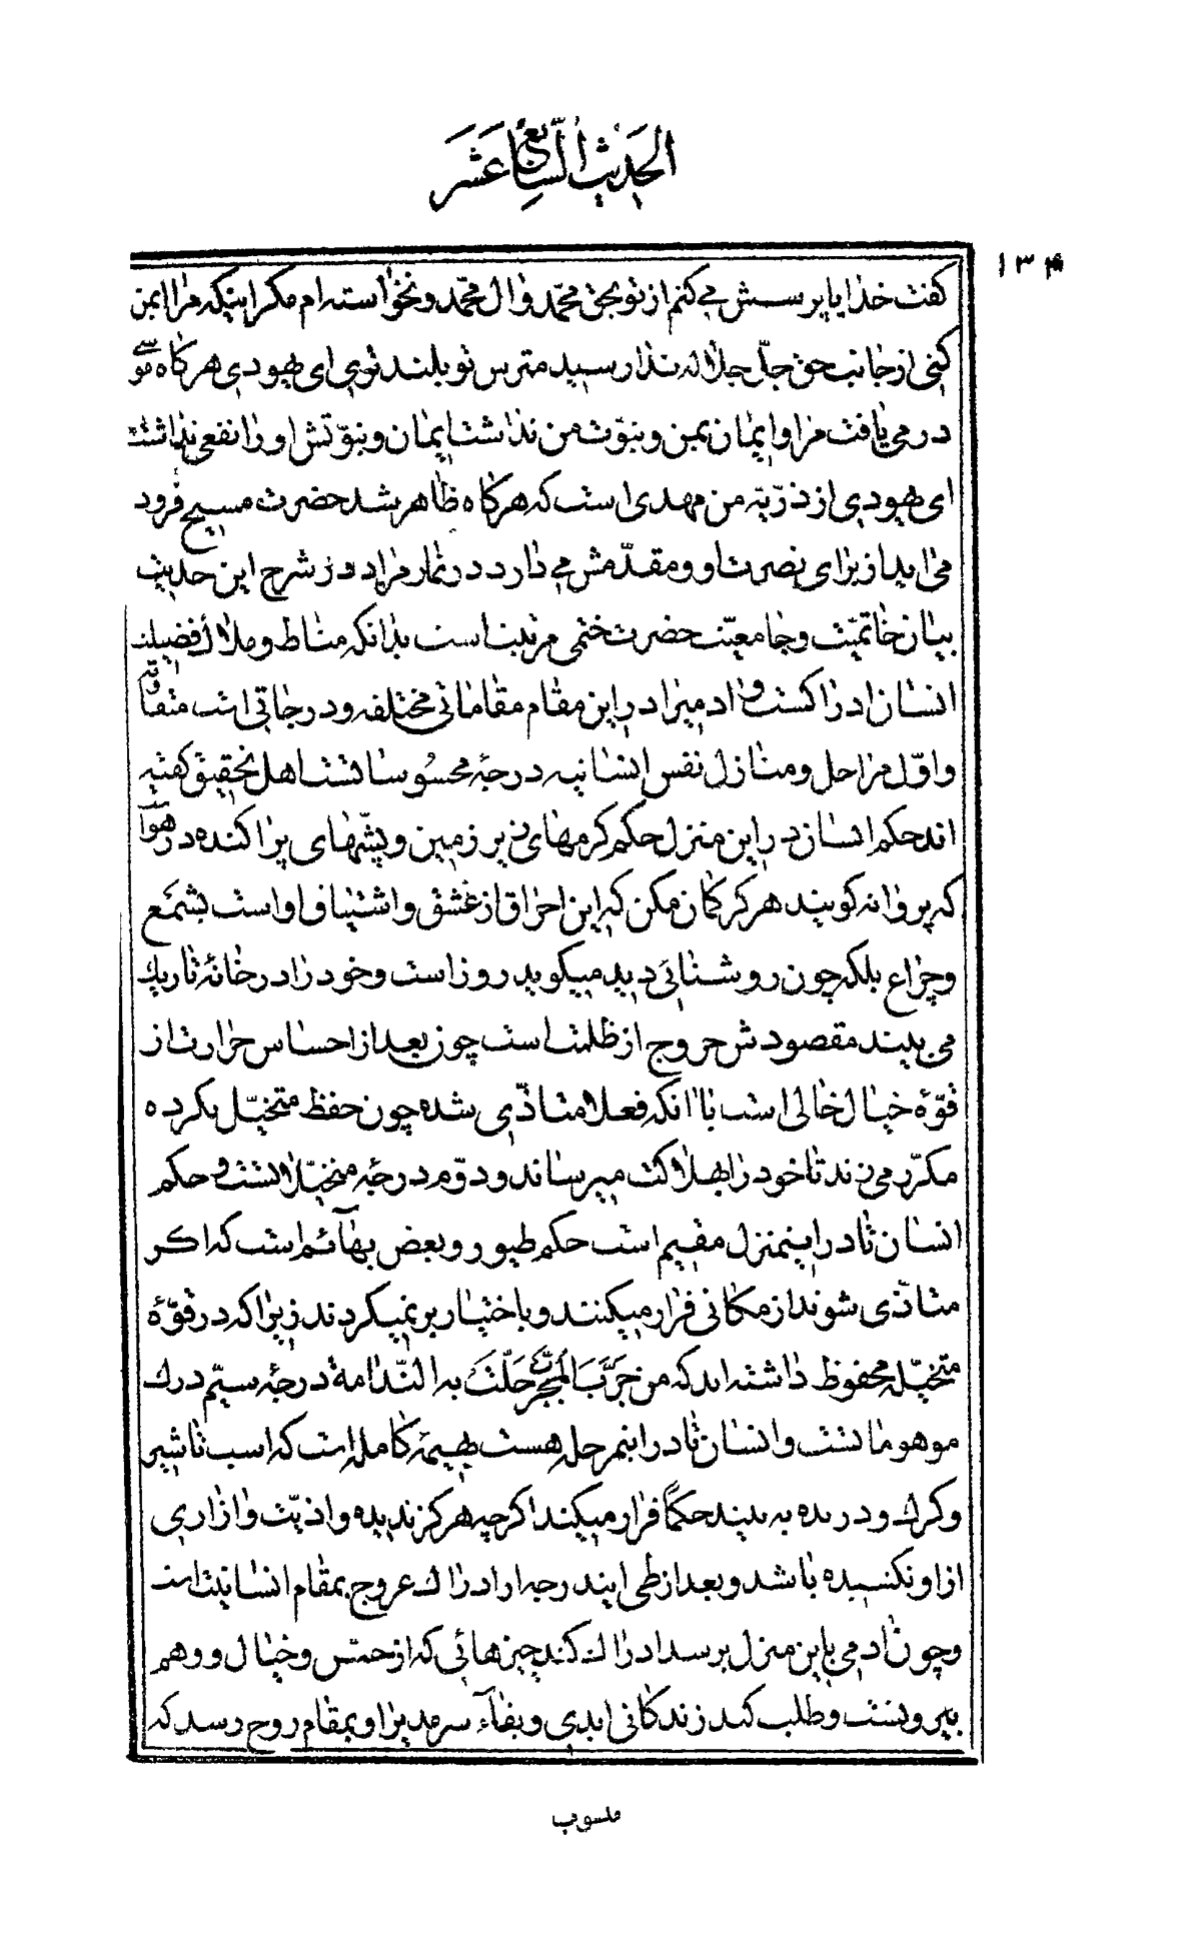 الحدیث السابع عشر
۱۳۴
کفت خدایا پرسش می کنم از تو بحق محمّد و ال محمّد و نخواسته ام مکر اینکه مرا ایمن
کنی از جانب حق جلّ جلاله ندا رسید مترس تو بلند توی ای یهودی هرکاه موسی
در می یافت مرا و ایمان بمن و نبوّت من نداشت ایمان و نبوّتش او را نفعی نداشت
ای یهودی از ذرّیّه من مهدی است که هرکاه ظاهر شد حضرت مسیح فرود
می اید از برای نصرت او و مقدّمش می دارد در نماز مراد در شرح این حدیث
بیان خاتمیّت و جامعیّت حضرت ختمی مرتبت است بدانکه مناط و ملاک أفضیلت
انسان ادراکست و ادمیرا در این مقام مقاماتی مختلفه و درجاتی است متفاوته
و اوّل مراحل و منازل نفس انسانیه درجهٔ محسوساتست اهل تحقیق کفته
اند حکم انسان در این منزل حکم کرمهای زیر زمین و پشّهای پراکنده در هوا
که پروانه کویند هرکز کمان مکن که این احراق از عشق و اشتیاق او است بشمع
و چراغ بلکه چون روشنائی دید میکوید روز است و خود را در خانهٔ تاریك
می بیند مقصودش خروج از ظلمت است چون بعد از احساس حرارت از
قوّهٔ خیال خالی است با انکه فعلا متاذّی شده چون حفظ متخیّل نکرده
مکرّر می زند تا خود را بهلاکت میرساند و دوّم درجهٔ متخیّلاتست و حکم
انسان تا در اینمنزل مقیم است حکم طیور و بعض بهآئم است که اکر
متاذّی شوند از مکانی فرار میکنند و باختیار بر نمیکردند زیرا که در قوّهٔ
متخیّله محفوظ داشته اند که من جَرَّبَ المُجَرَّبَ حَلَّتْ به النّدامة درجهٔ سیّم درك
موهوماتست و انسان تا در اینمرحله هست بهیمهٔ کامله است که اسب تا شیر
و کرك و درنده به بیند حکماً فرار میکند اکرچه هرکز ندیده و اذیّت و ازاری
از او نکشیده باشد و بعد از طی ایندرجه ادراك عروج بمقام انسانیت است
و چون ادمی باین منزل برسد ادراك کند چیزهائی که از حسّ و خیال و وهم
بیرونست و طلب کند زندکانی ابدی و بقاء سرمدیرا و بمقام روح رسد که
منسوب